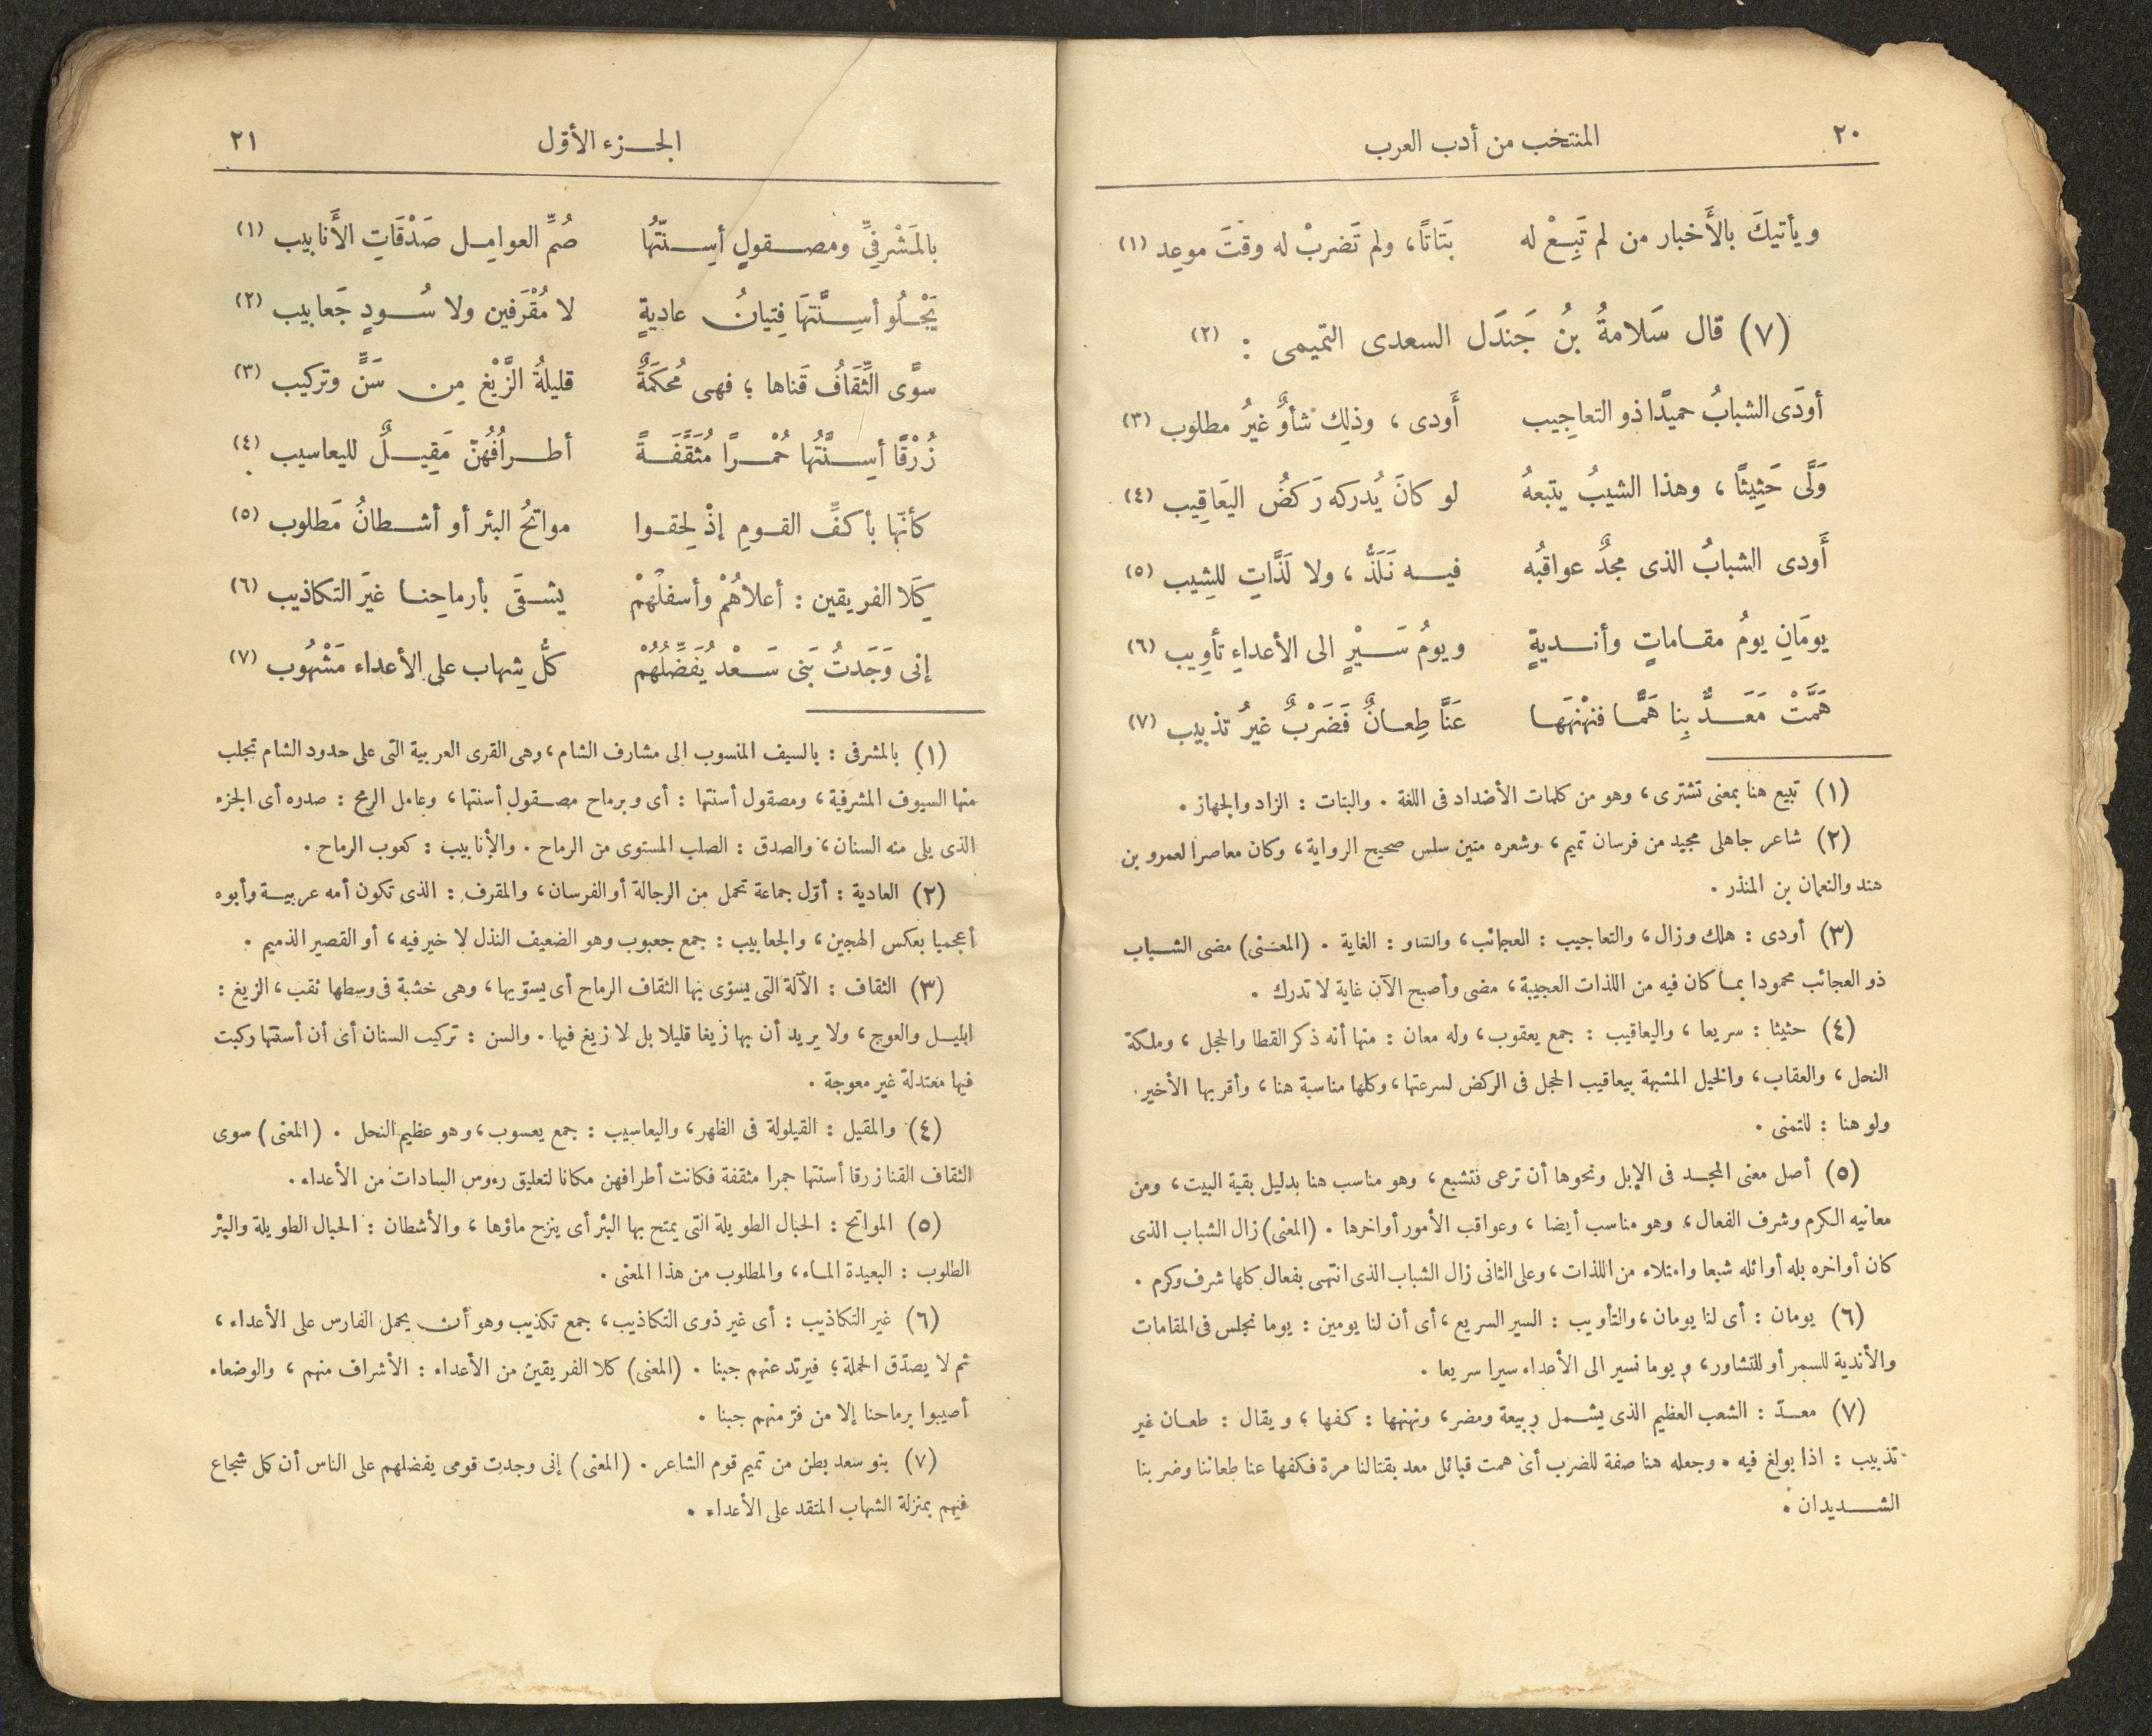 ٢٠
المنتخب من أدب العرب
ويأتيكَ بالأَخبار من لم تَبِعْ له بَتَاتًا، ولم تَضربْ له وقتَ موعِد (١)
(٧) قال سَلامةُ بنُ جَندَل السعدى التميمى : (٢)
أودَى الشبابُ حميدًا ذو التعاجِيب أَودى ، وذلِك شأوٌ غيرُ مطلوب (٣)
وَلَّى حَثِيثًا ، وهذا الشيبُ يتبعهُ لو كانَ يُدركه رَكضُ اليَعَاقِيب (٤)
أَودى الشبابُ الذى مجدٌ عواقبُه فيـه نَلَذُّ ، ولا لَذَّاتِ للِشِيب (٥)
يومَانِ يومُ مقـاماتٍ وأنـديةٍ ويومُ سَـيْرٍ الى الأعداءِ تأوِيب (٦)
هَمَّتْ مَعَـدٌّ بِنا هَمًّا فنهْنهَهـا عَنَّا طِعـانٌ فَضَرْبٌ غيرُ تذبيب (٧)
(١) تبيع هنا بمعنى تشترى ، وهو من كلمات الأضداد فى اللغة . والبتات : الزاد والجهاز .
(٢) شاعر جاهلى مجيد من فرسان تميم ، وشعره متين سلس صحيح الرواية ، وكان معاصرا لعمرو بن
هند والنعمان بن المنذر .
(٣) أودى : هلك وزال ، والتعاجيب : العجائب ، والشاو : الغاية . (المعـنى) مضى الشـباب
ذو العجائب محمودا بمـا كان فيه من اللذات العجيبة ، مضى وأصبح الآن غاية لا تدرك .
(٤) حثيثا : سريعا ، واليعاقيب : جمع يعقوب ، وله معان : منها أنه ذكر القطا والحجل ، وملكة
النحل ، والعقاب ، والخيل المشبهة بيعاقيب الحجل فى الركض لسرعتها ، وكلها مناسبة هنا ، وأقربها الأخير .
ولو هنا : للتمنى .
(٥) أصل معنى المجـد فى الإبل ونحوها أن ترعى فتشبع ، وهو مناسب هنا بدليل بقية البيت ، ومن
معانيه الكرم وشرف الفعال ، وهو مناسب أيضا ، وعواقب الأمور أواخرها . (المعنى) زال الشباب الذى
كان أواخره بله أوائله شبعا وامتلاء من اللذات ، وعلى الثانى زال الشباب الذى انتهى بفعال كلها شرف وكرم .
(٦) يومان : أى لنا يومان ، والتأويب : السير السريع ، أى أن لنا يومين : يوما نجلس فى المقامات
والأندية للسمر أو للتشاور ، ويوما نسير الى الأعداء سيرا سريعا .
(٧) معـدّ : الشعب العظيم الذى يشـمل ربيعة ومضر ، ونهنهها : كفها ؛ ويقال : طعـان غير
تذبيب : اذا بولغ فيه . وجعله هنا صفة للضرب أى همت قبائل معد بقتالنا مرة فكفها عنا طعاننا وضربنا
الشـديدان .
الجـزء الأوّل
٢١
بالمَشْرفِىِّ ومصـقولٍ أسِـنّتُها صُمِّ العوامِـل صَدْقَاتِ الأَنابيب (١)
يَجْـلُو أسِـنَّتهَا فِتيانُ عاديةٍ لا مُقْرَفين ولا سُـودٍ جَعابيب (٢)
سوَّى الثِّقَافُ قَناها ؛ فهى مُحكَمَةٌ قليلةُ الزَّيْغ مِن سَنٍّ وتركيب (٣)
زُرْقًا أسِـنَّتُها حُمْـرًا مُثَقَّفَـةً أطـرافُهُنّ مَقِيـلٌ لليعاسيب (٤)
كأنّها بأكفِّ القـومِ إذْ لِحقـوا مواتحُ البئر أو أشـطانُ مَطلوب (٥)
كِلَا الفريقين : أعلاهُمْ وأسفلُهمْ يشـقَى بأرماحِنـا غيَر التكاذيب (٦)
إنى وَجَدتُ بَنى سَـعْد يُفَضِّلُهُمْ كلُّ شِهاب على الأعداء مَشْهُوب (٧)
(١) بالمشرفى : بالسيف المنسوب الى مشارف الشام ، وهى القرى العربية التى على حدود الشام تجلب
منها السيوف المشرفية ، ومصقول أسنتها : أى وبرماح مصـقول أسنتها ، وعامل الرمح : صدره أى الجزء
الذى يلى منه السنان ، والصدق : الصلب المستوى من الرماح . والأنابيب : كعوب الرماح .
(٢) العادية : أوّل جماعة تحمل من الرجالة أو الفرسان ، والمقرف : الذى تكون أمه عربيـة وأبوه
أعجميا بعكس الهجين ، والجعابيب : جمع جعبوب وهو الضعيف النذل لا خير فيه ، أو القصير الذميم .
(٣) الثقاف : الآلة التى يسوّى بها الثقاف الرماح أى يسوّيها ، وهى خشبة فى وسطها ثقب ، الزيغ :
الميـل والعوج ، ولا يريد أن بها زيغا قليلا بل لا زيغ فيها . والسن : تركيب السنان أى أن أسنتها ركبت
فيها معتدلة غير معوجة .
(٤) والمقيل : القيلولة فى الظهر ، واليعاسيب : جمع يعسوب ، وهو عظيم النحل . (المعنى) سوى
الثقاف القنا زرقا أسنتها حمرا مثقفة فكانت أطرافهن مكانا لتعليق رءوس السادات من الأعداء .
(٥) المواتح : الحبال الطويلة التى يمتح بها البئر أى ينزح ماؤها ، والأشطان : الحبال الطويلة والبئر
الطلوب : البعيدة المـاء ، والمطلوب من هذا المعنى .
(٦) غير التكاذيب : أى غير ذوى التكاذيب ، جمع تكذيب وهو أن يحمل الفارس على الأعداء ،
ثم لا يصدّق الحملة ؛ فيرتد عنهم جبنا . (المعنى) كلا الفريقين من الأعداء : الأشراف منهم ، والوضعاء
أصيبوا برماحنا إلا من فرّ منهم جبنا .
(٧) بنو سعد بطن من تميم قوم الشاعر . (المعنى) إنى وجدت قومى يفضلهم على الناس أن كل شجاع
فيهم بمنزلة الشهاب المتقد على الأعداء .